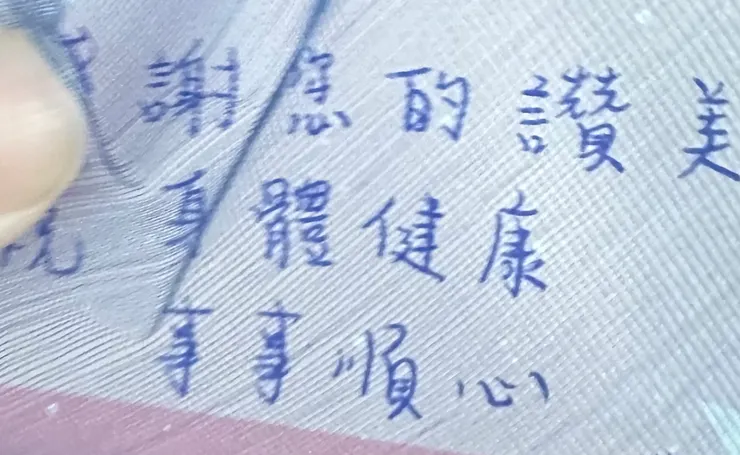 謝您的讚美
身體健康
事事順心